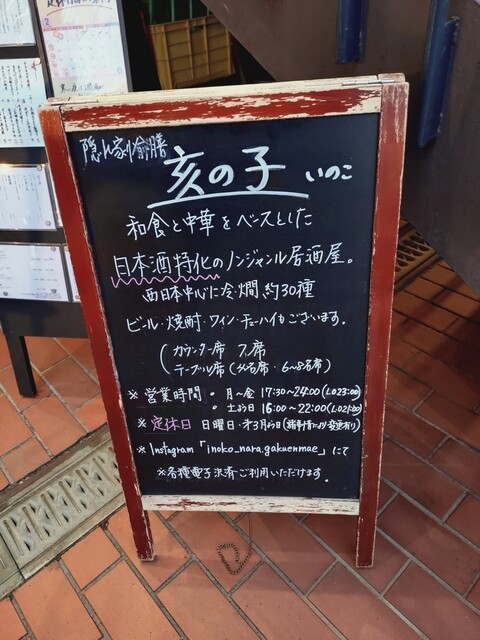 隠れ家り食膳
亥の子 いのこ
和食と中華をベースとした
日本酒特化のノンジャンル居酒屋。
西日本中心に冷・燗 約30種
ビール・焼酎・ワイン・チューハイもございます。
カウンター席 7席
テーブル席
6〜8名席)
※営業時間 ・月〜金 17:30〜24:00(L.O23:00)
・土お日 16:00〜22:00(L.O21:00)
※定休日 日曜日・オ3月お日(諸事情により変更有り)
※Instagram「inoko_nara.gakuenmae」にて
※各種電子決済ご利用いただけます。